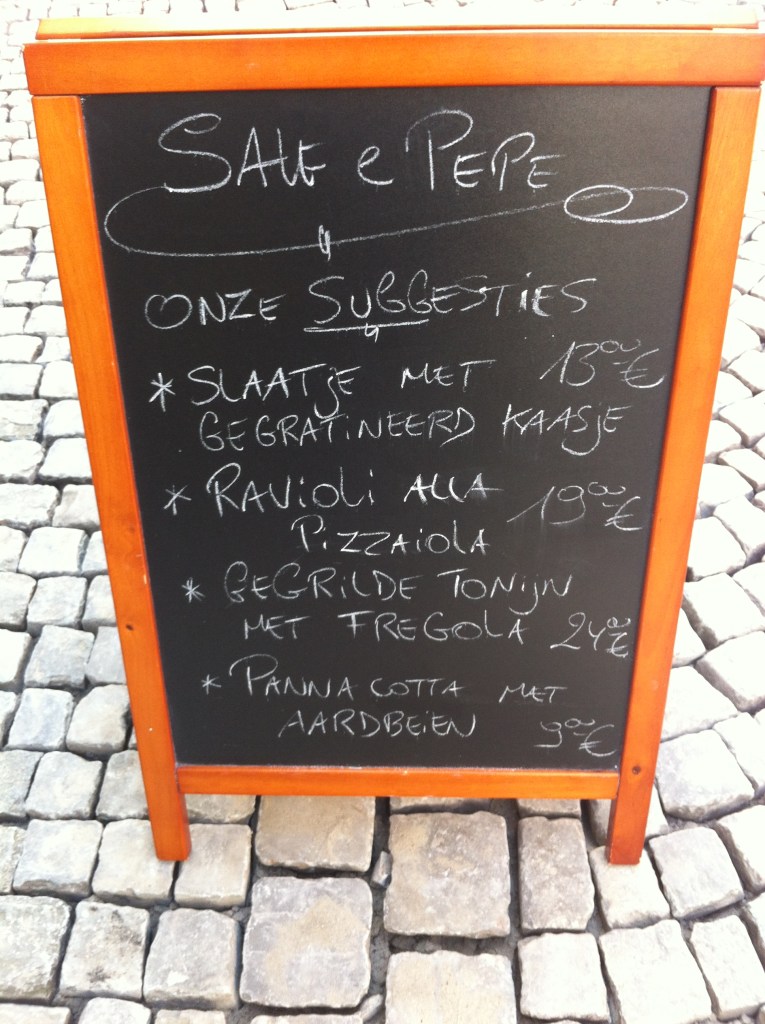 SALE e PEPE
ONZE SUGGESTIES
* SLAATJE MET 13,00 €
GEGRATINEERD KAASJE
* RAVIOLI ALLA 19,00 €
PIZZAIOLA
* GEGRILDE TONIJN
MET FREGOLA 24,00 €
* PANNA COTTA MET
AARDBEIEN 9,00 €